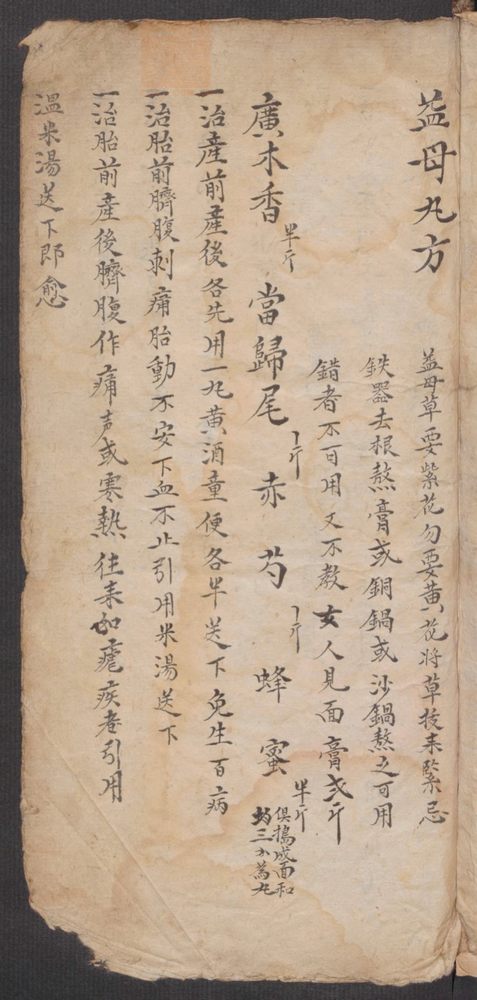 益母丸方
益母草要紫花勿要黄花将草拔来緊忌
鉄器去根熬膏或銅鍋或沙鍋熬之可用
錯者不可用又不教女人見面膏弍斤
廣木香半斤 當歸尾一斤 赤芍一斤 蜂蜜半斤 俱搗成面和
均三分為丸
一治產前產後各先用一丸黄酒童便各半送下免生百病
一治胎前臍腹刺痛胎動不安下血不止引用米湯送下
一治胎前產後臍腹作痛声或寒熱往来如瘧疾者引用
溫米湯送下即愈